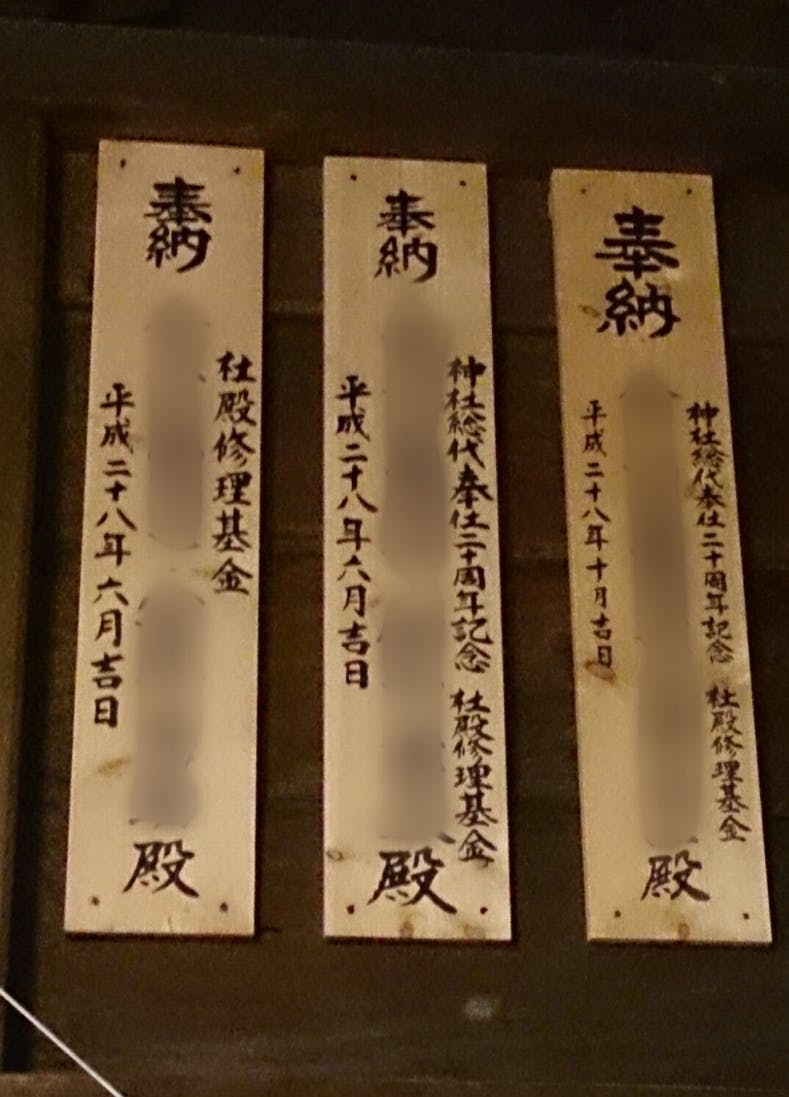 奉納
神社総代奉仕二十周年記念 社殿修理基金
平成二十八年十月吉日
殿
奉納
神社総代奉仕二十周年記念 社殿修理基金
平成二十八年六月吉日
殿
奉納
社殿修理基金
平成二十八年六月吉日
殿